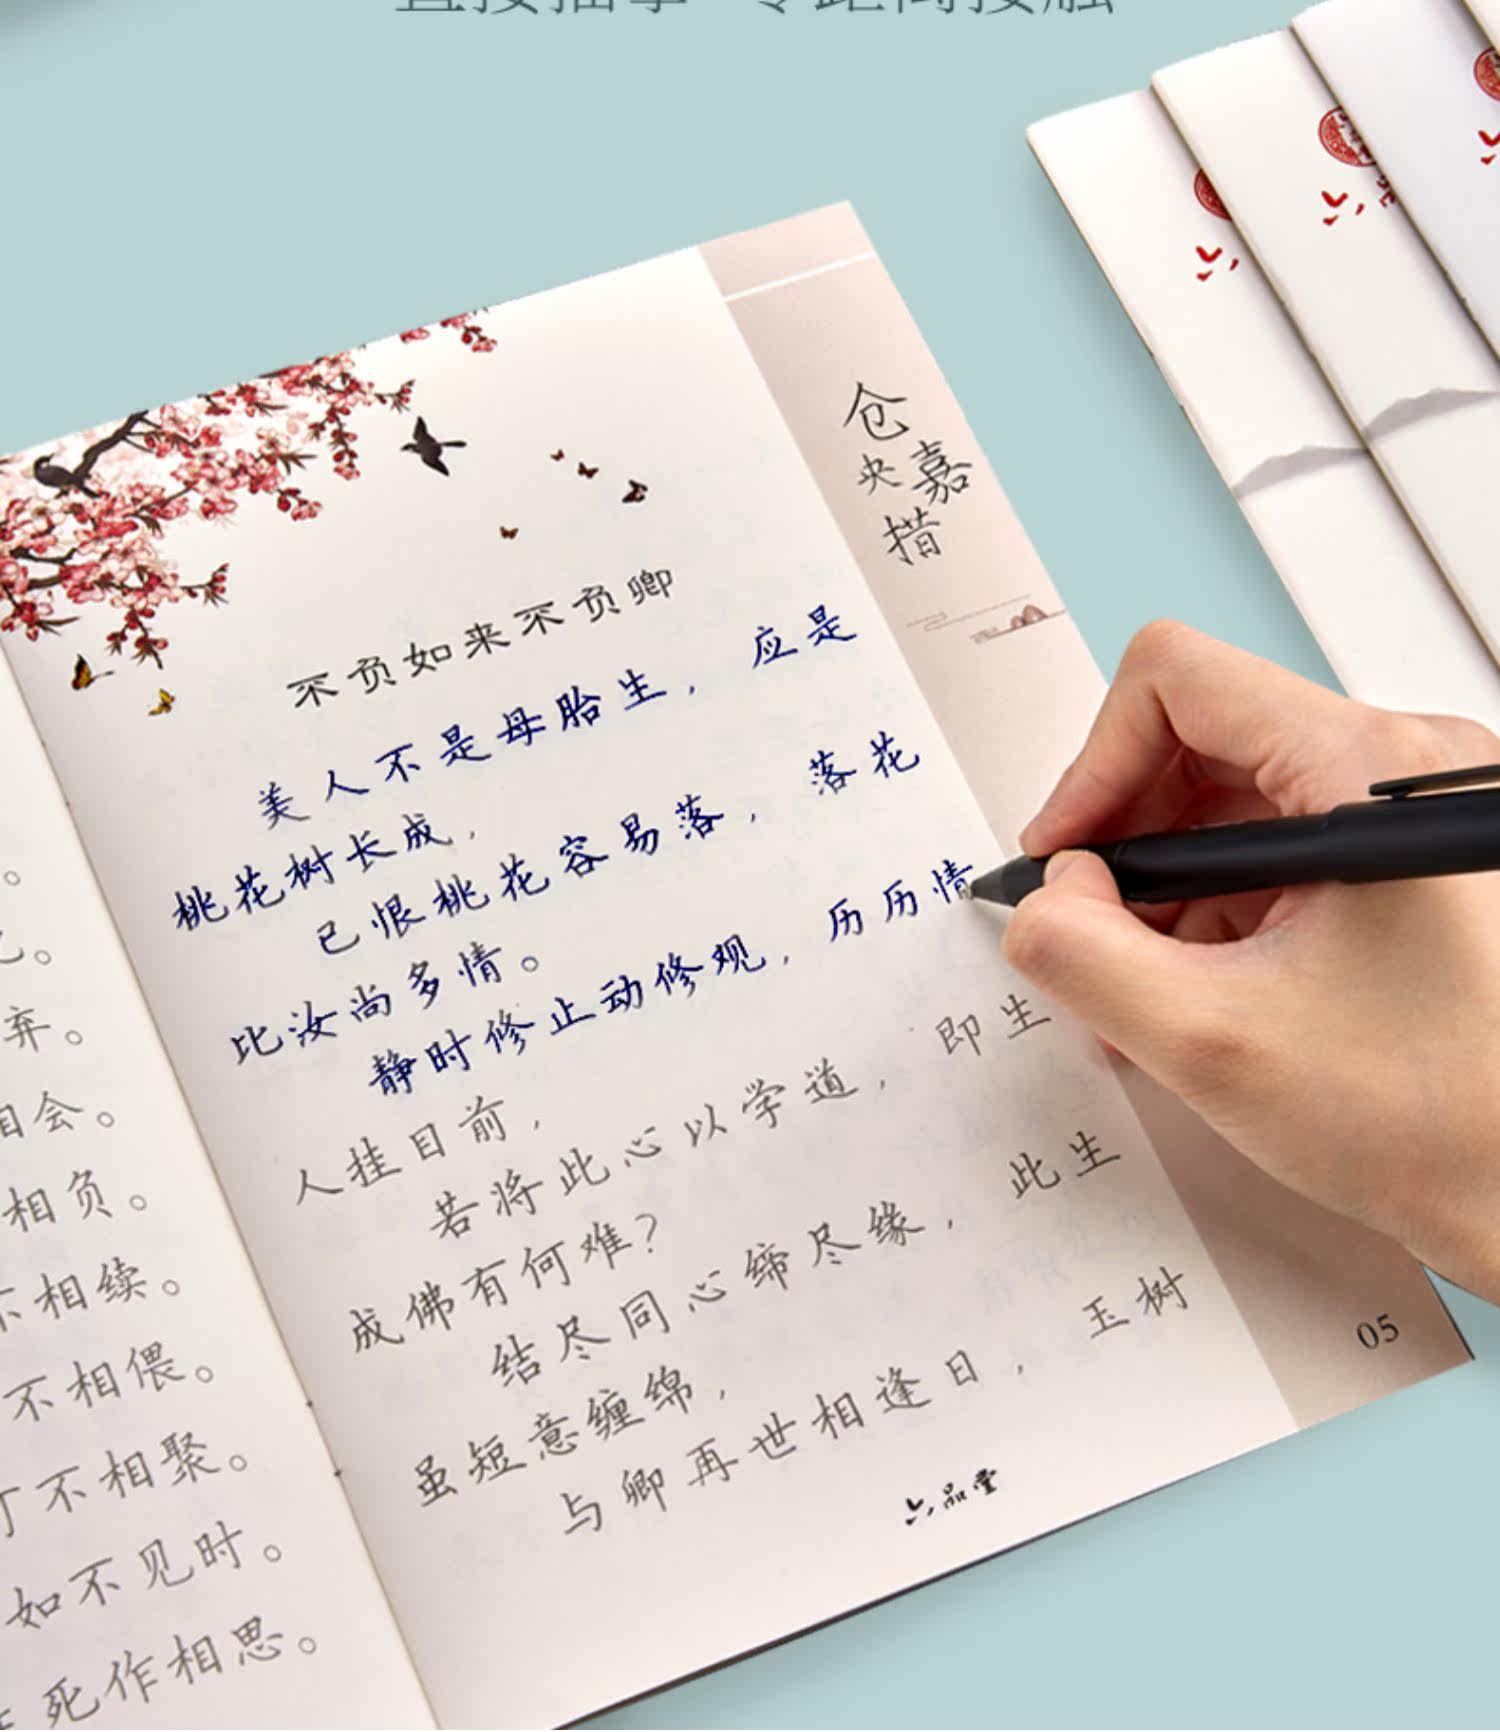 不负如来不负卿
美人不是母胎生，应是
桃花树长成，
已恨桃花容易落，落花
比汝尚多情。
静时修止动修观，历历情
人挂目前，
若将此心以学道，即生
成佛有何难？
结尽同心缔尽缘，此生
虽短意缠绵，
与卿再世相逢日，玉树
六品堂
仓央嘉措
05
。
。
弃。
相会。
相负。
不相续。
不相偎。
不相聚。
如不见时。
死作相思。